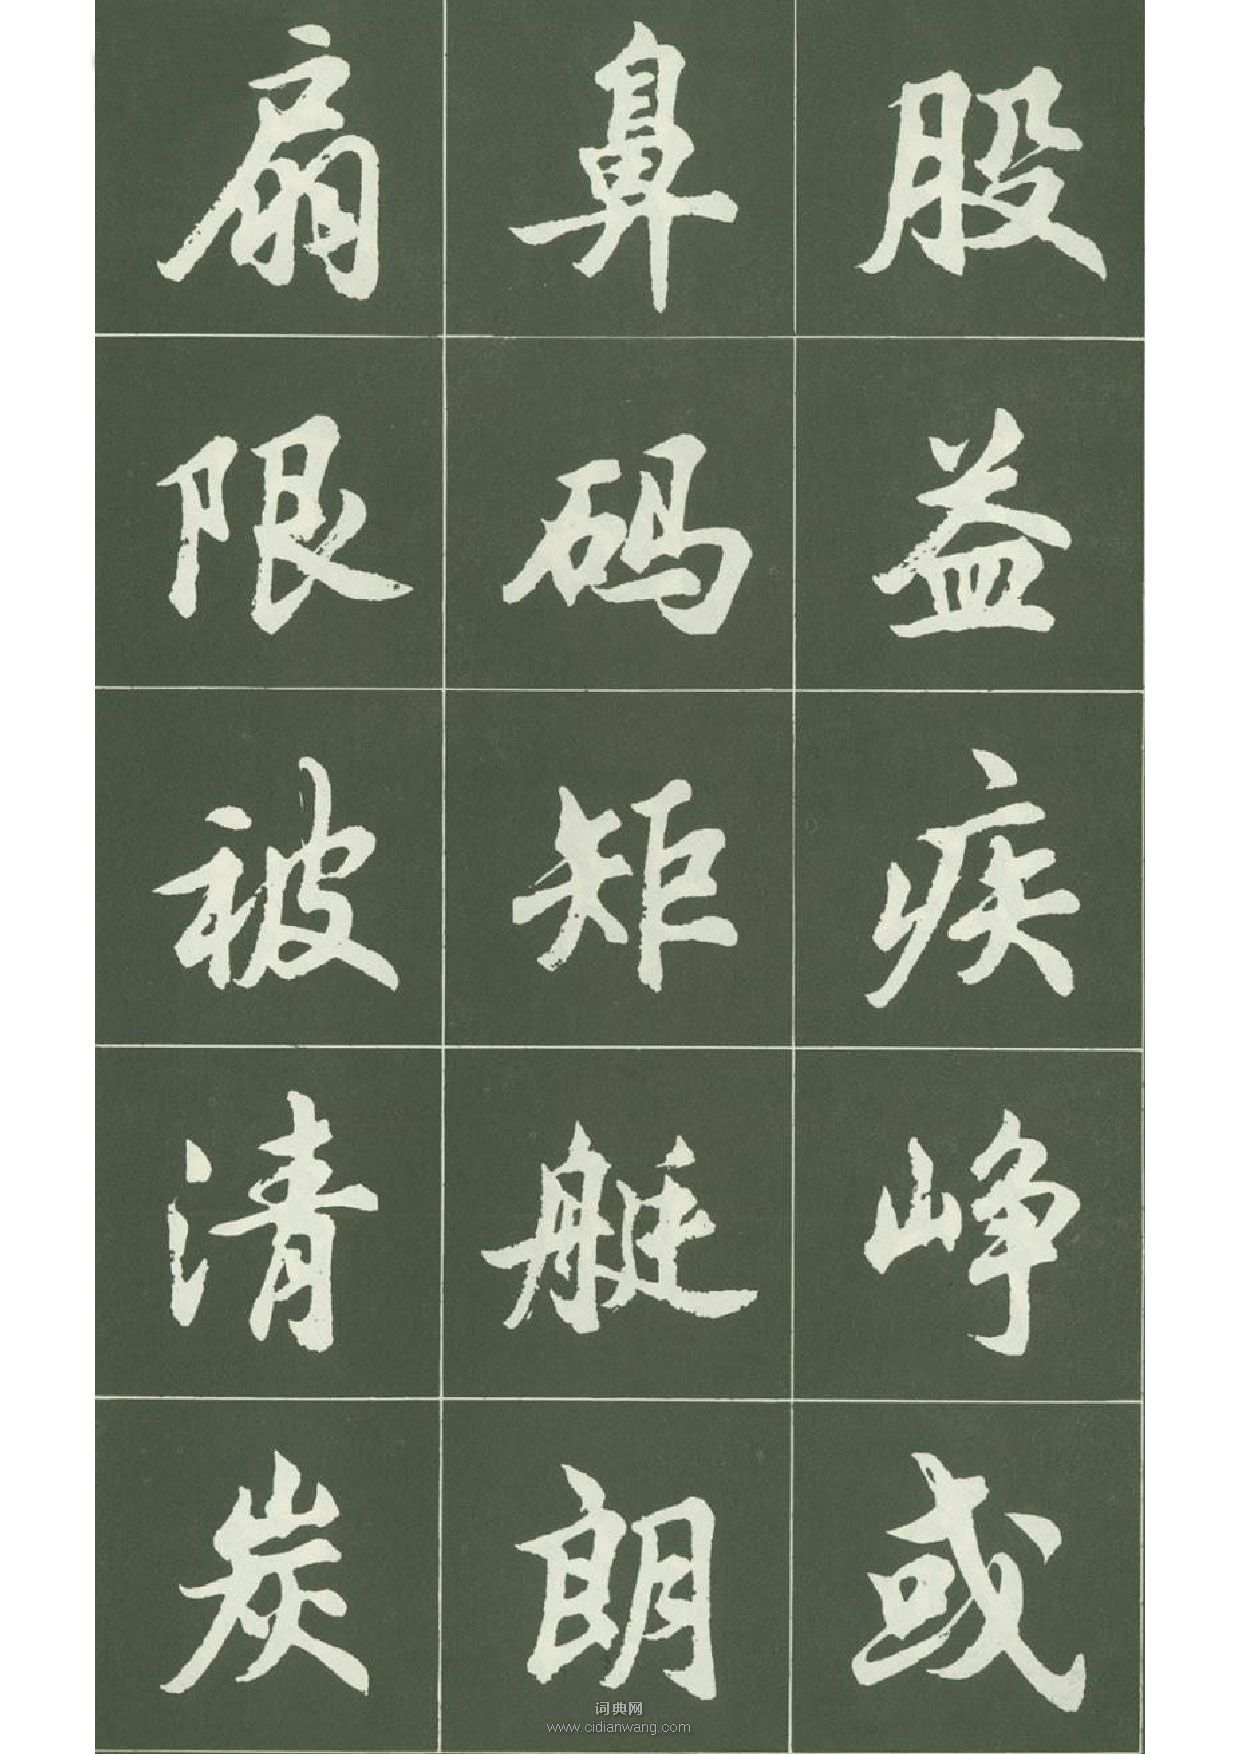 股益疾峥或
鼻码矩艇朗
扇限被清炭
词典网
www.cidianwang.com